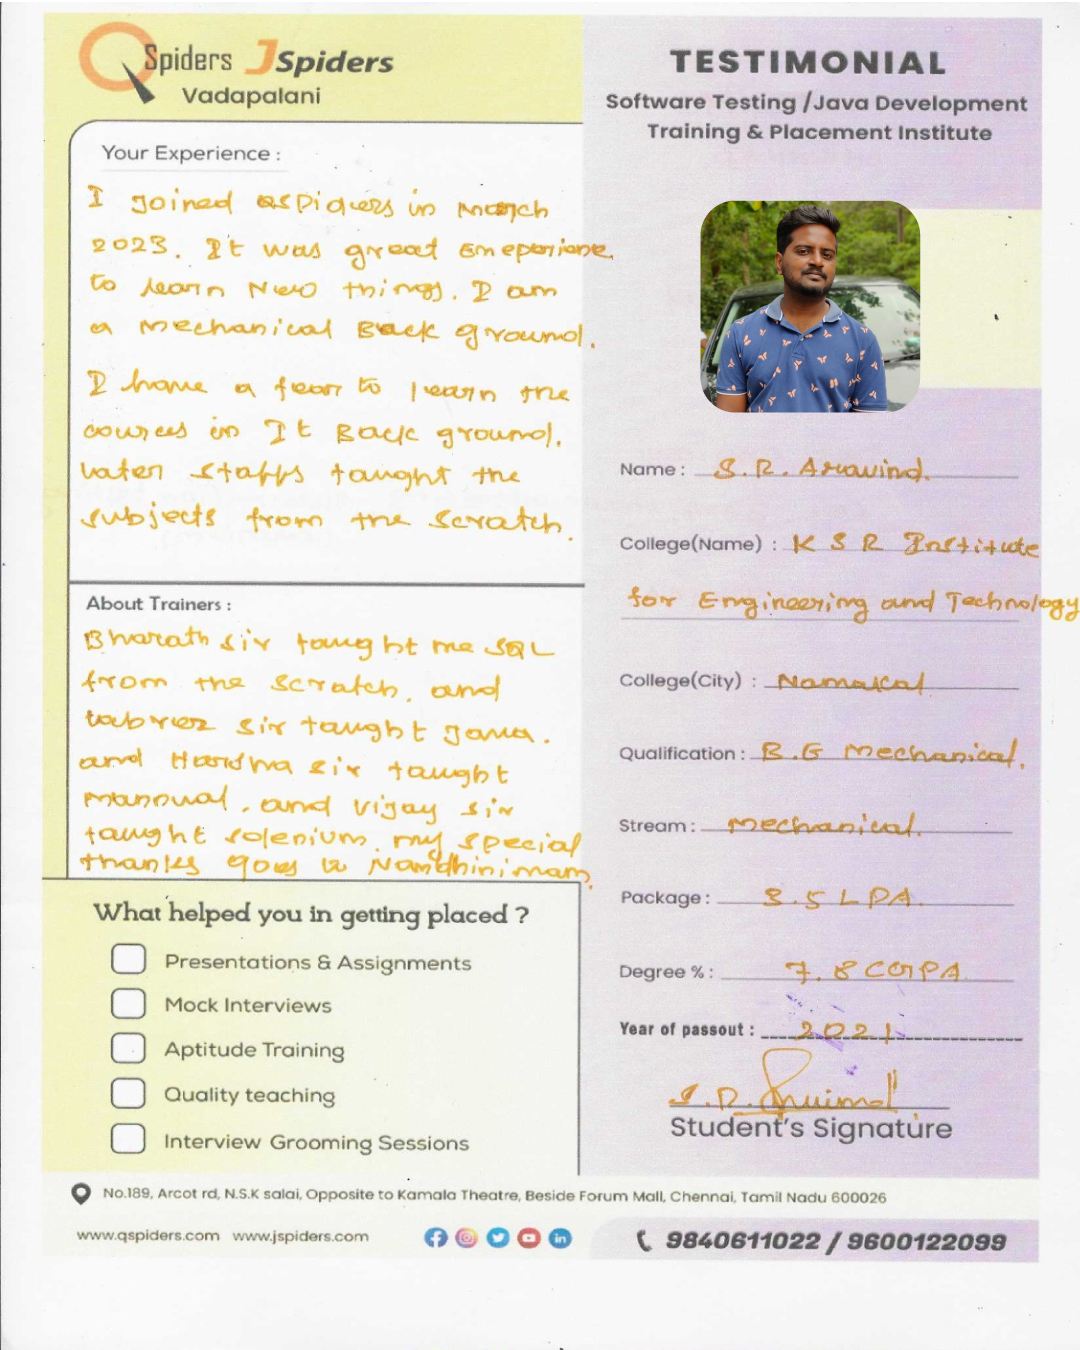 QSpiders JSpiders
Vadapalani
Your Experience :
I Joined QSPiders in March
2023. It was great
to learn New things. I am
a mechanical Back ground.
I have a fear to learn the
courses in It Back ground.
Later staffs taught the
subjects from the Scratch.
About Trainers :
Bharath sir taught me SQL
from the scratch, and
tabrez sir taught Java.
and Harsha sir taught
mannual, and vijay sir
taught selenium. my special
thanks goes to Nandhini mam.
What helped you in getting placed ?
Presentations & Assignments
Mock Interviews
Aptitude Training
Quality teaching
Interview Grooming Sessions
TESTIMONIAL
Software Testing /Java Development
Training & Placement Institute
Name : S.R. Aravind.
College(Name) : K S R Institute
for Engineering and Technology
College(City) : Namakal
Qualification : B.E Mechanical.
Stream : mechanical.
Package : 3.5 LPA.
Degree % : 7.8 CGPA
Year of passout : 2021
Student's Signature
No.189, Arcot rd, N.S.K salai, Opposite to Kamala Theatre, Beside Forum Mall, Chennai, Tamil Nadu 600026
www.qspiders.com www.jspiders.com
9840611022 / 9600122099